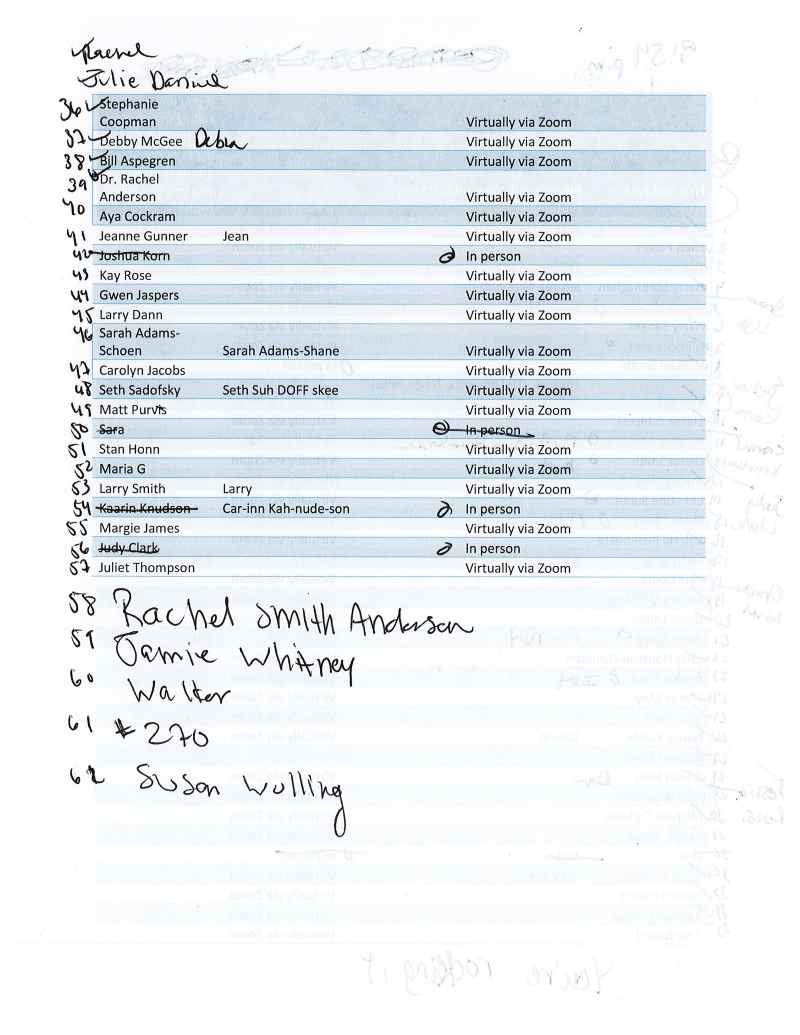 Rachel
Julie Daniel
36 Stephanie
Coopman Virtually via Zoom
37 Debby McGee Debra Virtually via Zoom
38 Bill Aspegren Virtually via Zoom
39 Dr. Rachel
Anderson Virtually via Zoom
40 Aya Cockram Virtually via Zoom
41 Jeanne Gunner Jean Virtually via Zoom
42 Joshua Korn In person
43 Kay Rose Virtually via Zoom
44 Gwen Jaspers Virtually via Zoom
45 Larry Dann Virtually via Zoom
46 Sarah Adams-
Schoen Sarah Adams-Shane Virtually via Zoom
47 Carolyn Jacobs Virtually via Zoom
48 Seth Sadofsky Seth Suh DOFF skee Virtually via Zoom
49 Matt Purvis Virtually via Zoom
50 Sara In person
51 Stan Honn Virtually via Zoom
52 Maria G Virtually via Zoom
53 Larry Smith Larry Virtually via Zoom
54 Kaarin Knudson Car-inn Kah-nude-son In person
55 Margie James Virtually via Zoom
56 Judy Clark In person
57 Juliet Thompson Virtually via Zoom
58 Rachel Smith Anderson
59 Jamie Whitney
60 Walter
61 #270
62 Susan Wulling